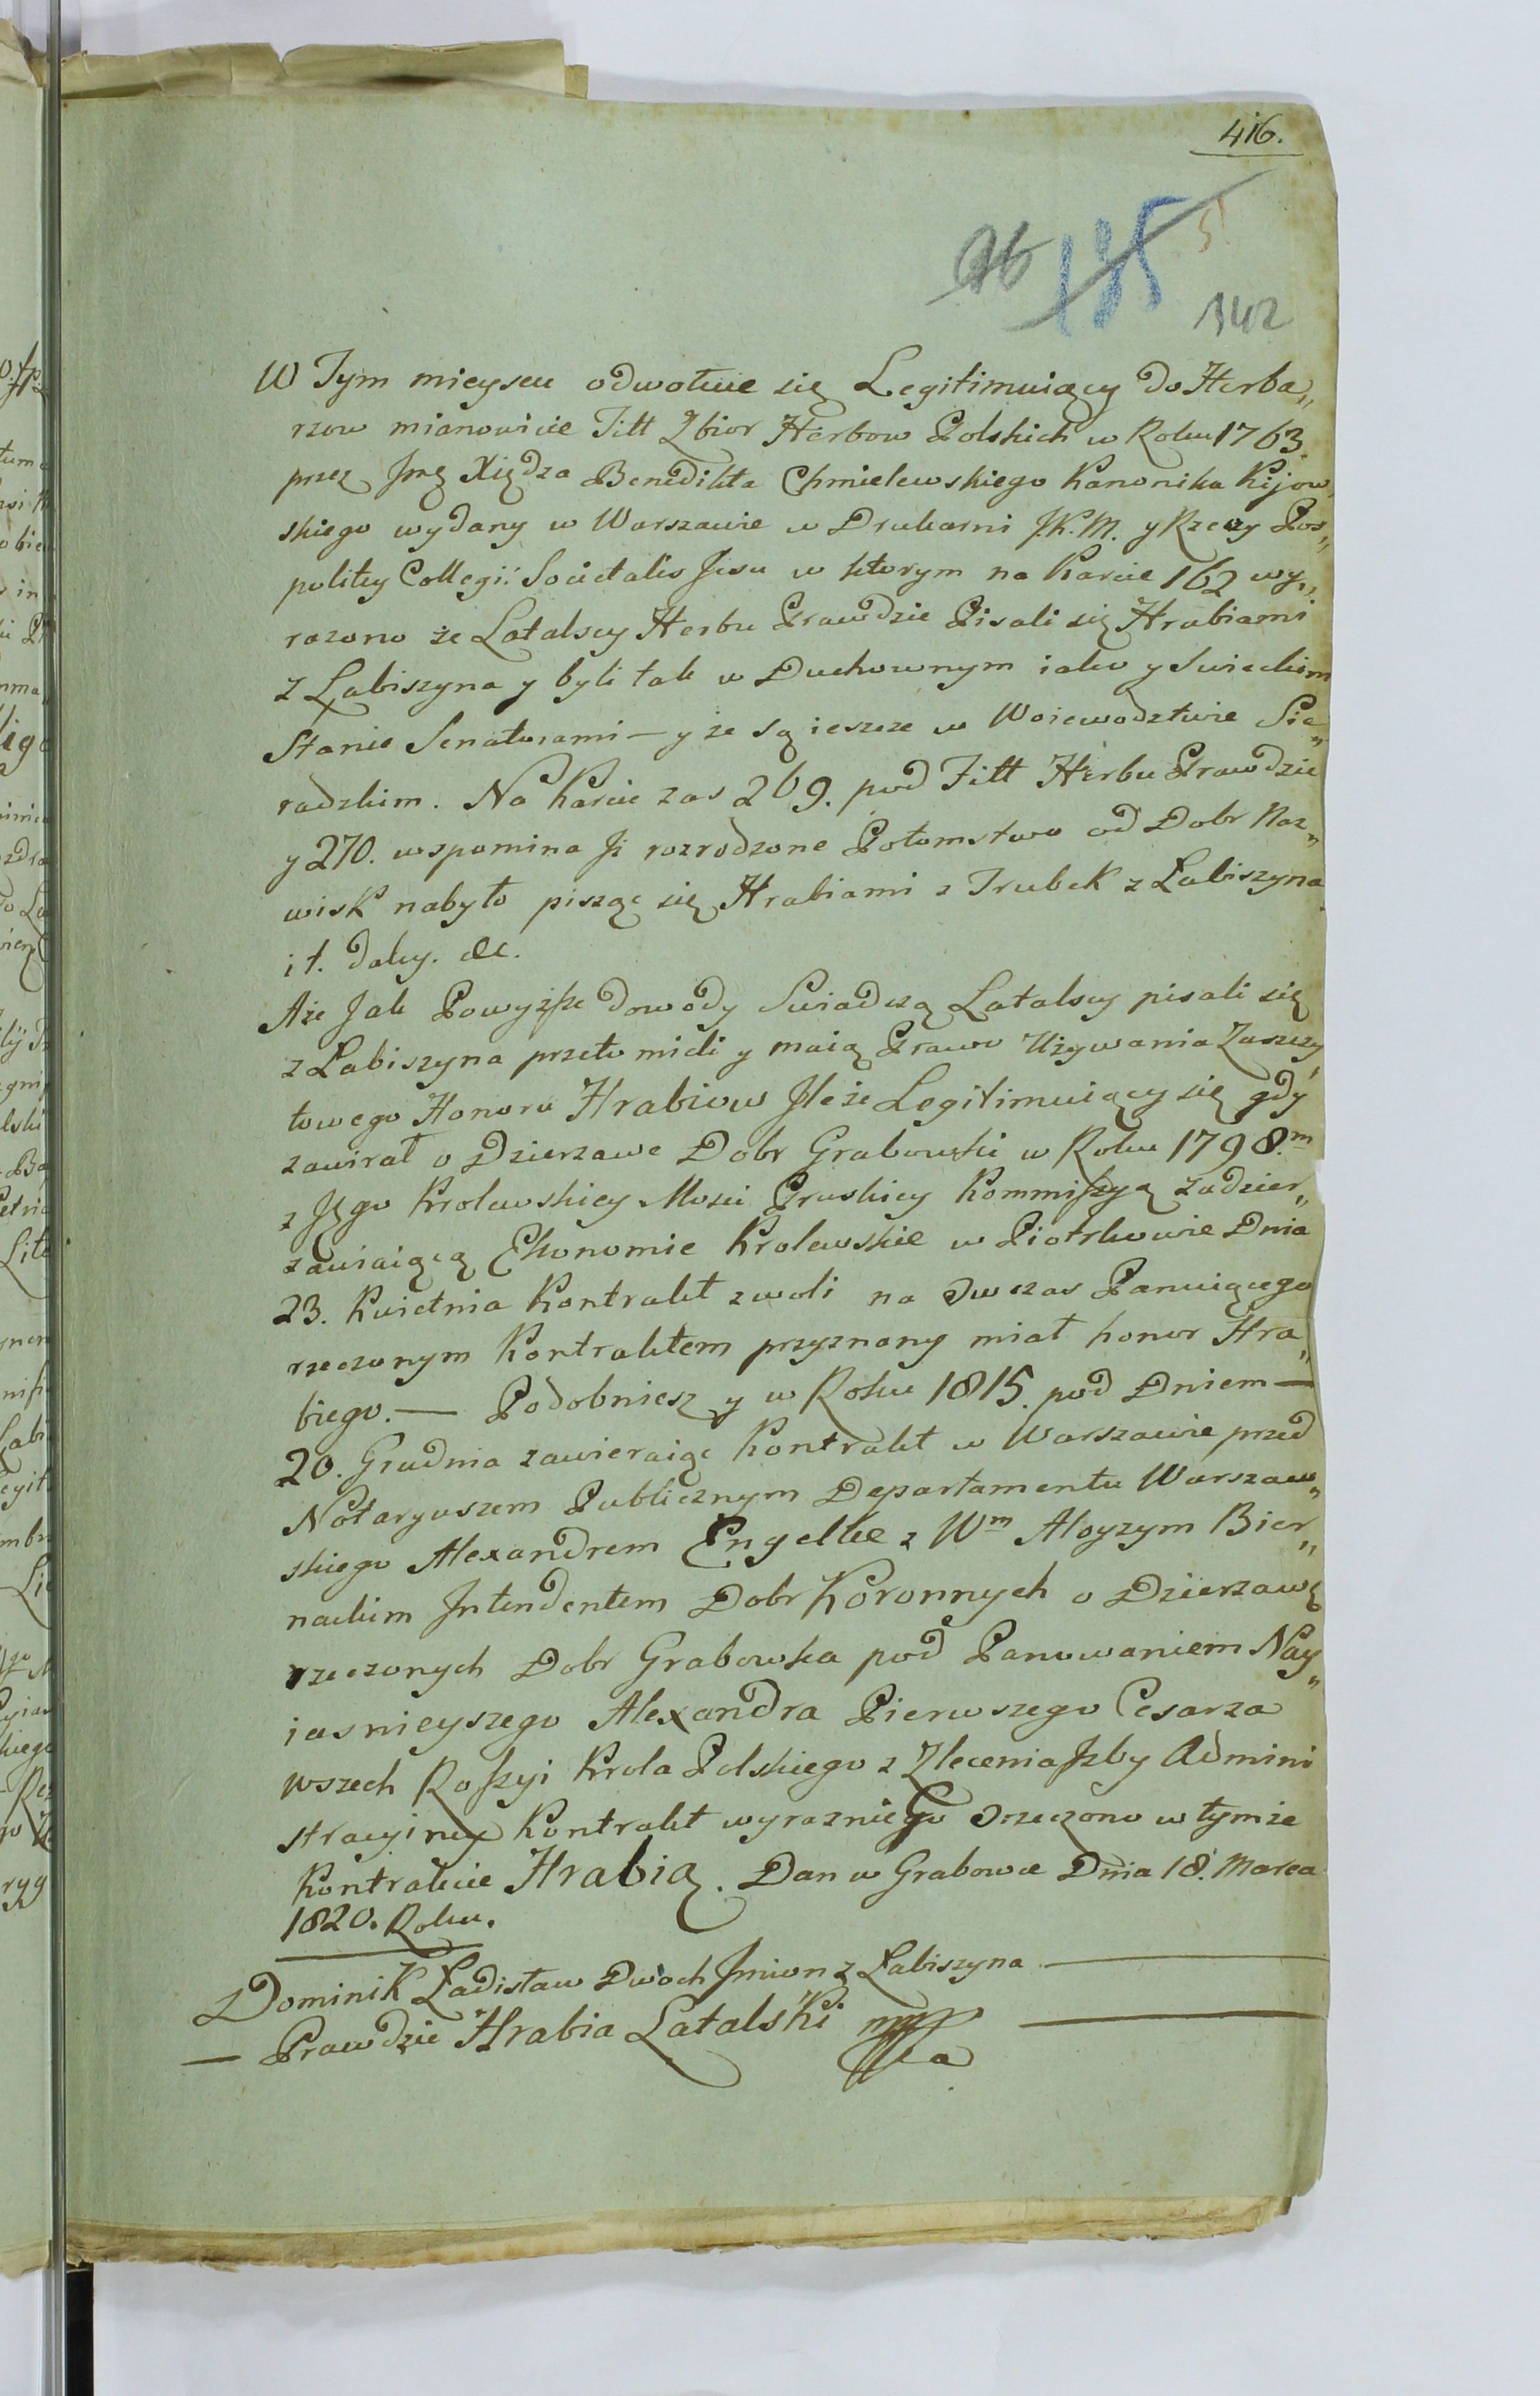 416.
96 185 5
342
W Tym mieyscu odwołuie się Legitimuiący do Herba„
rzow mianowicie Titt Zbior Herbow Polskich w Roku 1763.
przez Jmę Xiędza Benedikta Chmielewskiego Kanonika Kijow„
skiego wydany w Warszawie w Drukarni J.K.M. y Rzeczy Pos„
politey Collegii Societatis Jesu w ktorym na Karcie 162 wy„
razono że Latalscy Herbu Prawdzie Pisali się Hrabiami
z Łabiszyna y byli tak w Duchownym iako y Swieckim
Stanie Senatorami — y że są ieszcze w Woiewodztwie Sie„
radzkim. Na Karcie zas 269. pod Titt Herbu Prawdzie
y 270. wspomina Jż rozrodzone Potomstwo od Dobr Naz„
wisk nabyło pisząc się Hrabiami z Trubek z Łabiszyna
i t. daley. &c.
Aże Jak Powyższe dowody Swiadczą Latalscy pisali się
z Łabiszyna przeto mieli y maią Prawo Używania Zaszczy„
towego Honoru Hrabiow Jleże Legitimuiący się gdy
zawirał o Dzierzawe Dobr Grabowki w Roku 1798.m
z Jęgo Krolewskiey Mosci Pruskiey Kommißyą zadzier„
zawiaiącą Ekonomie Krolewskie w Piotrkowie Dnia
23. Kwietnia Kontrakt z woli na owczas Panuiącego
rzeczonym Kontraktem przyznany miał honor Hra„
biego. — Podobniesz y w Roku 1815. pod Dniem —
20. Grudnia zawieraiąc Kontrakt w Warszawie przed
Notaryuszem Publicznym Departamentu Warszaw„
skiego Alexandrem Engelke z Wm Aloyzym Bier„
nackim Jntendentem Dobr Koronnych o Dzierzawę
rzeczonych Dobr Grabowka pod Panowaniem Nay„
iasnieyszego Alexandra Pierwszego Cesarza
wszech Roßyi Krola Polskiego z Zlecenia Jzby Admini
stracyiney Kontrakt wyraznie Go orzeczono w tymże
Kontrakcie Hrabią. Dan w Grabowce Dnia 18. Marca
1820. Roku.
Dominik Ładisław Dwoch Jmion z Łabiszyna —
— Prawdzie Hrabia Latalski mppa —